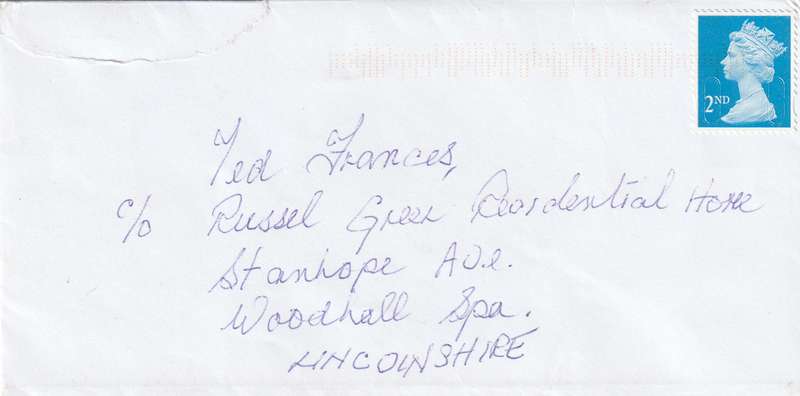 2ND
Ted Frances,
c/o Russel Green Residential Home
Stanhope Ave.
Woodhall Spa.
LINCOLNSHIRE